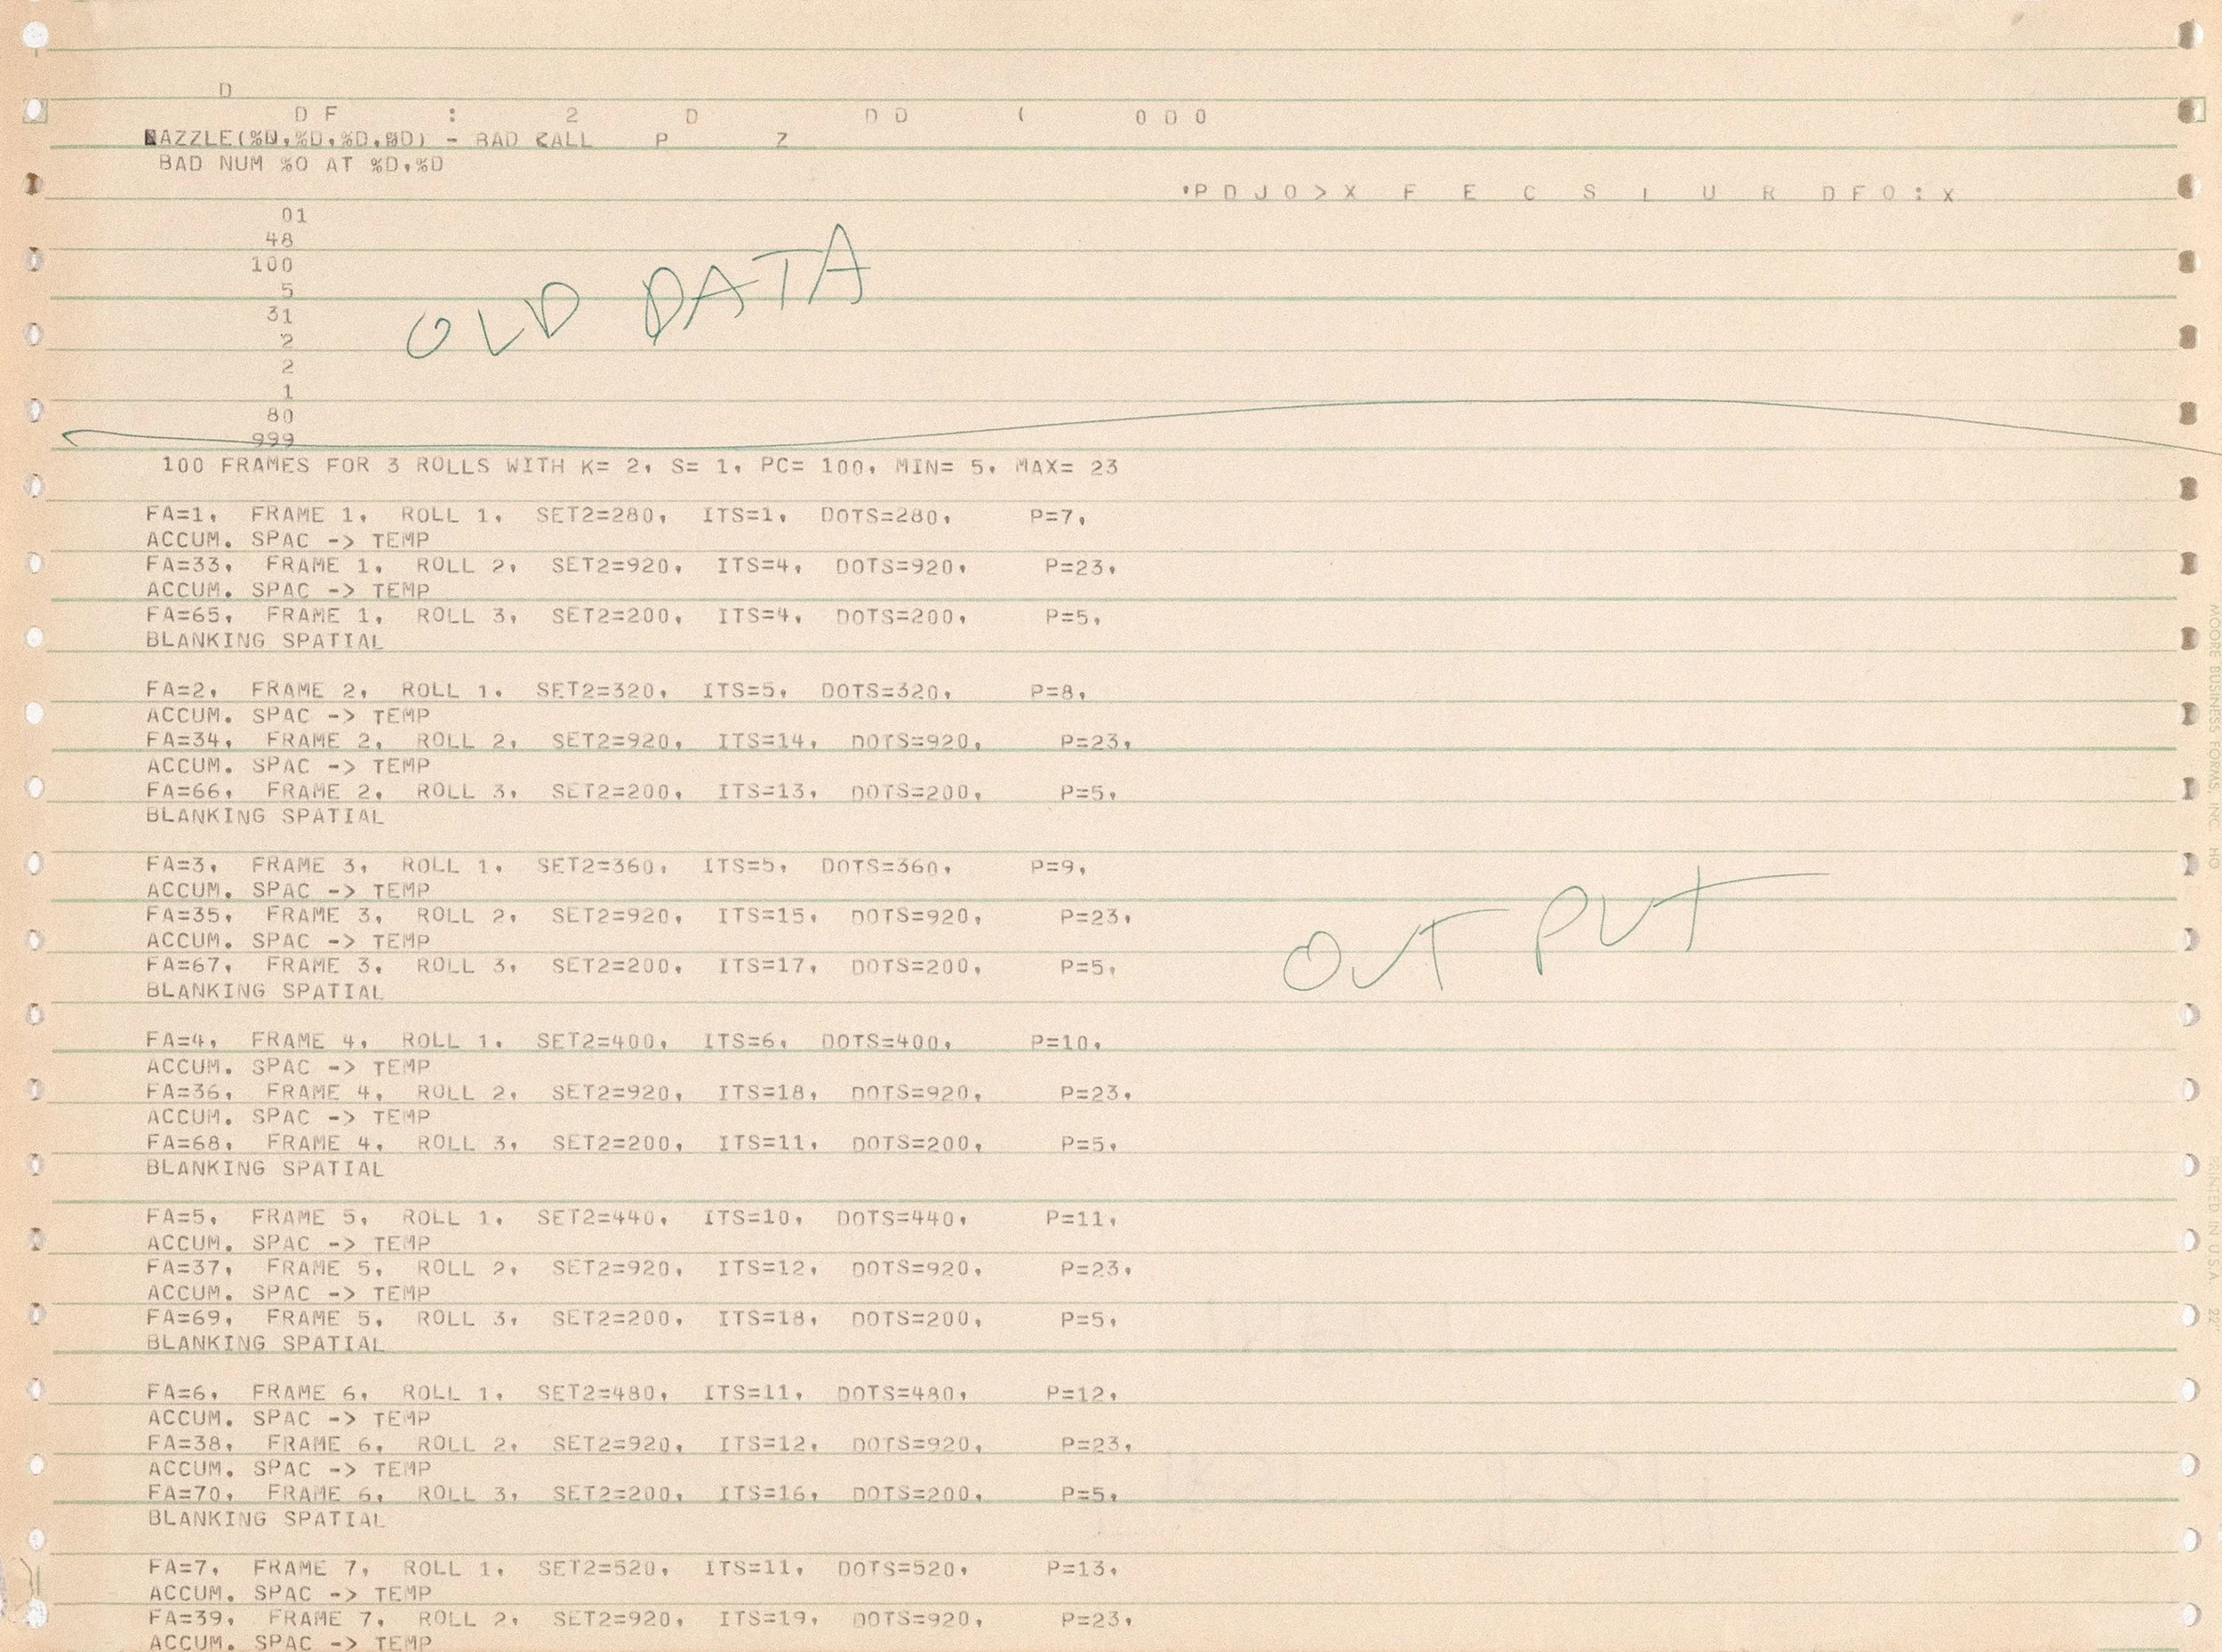 D
D F : 2 D D D ( 0 0 0
DAZZLE(%D,%D,%D,%D) - BAD CALL P Z
BAD NUM %O AT %D,%D
'P D J O > X F E C S I U R D F O : X
01
48
100
5
31
2
2
1
80
999
OLD DATA
100 FRAMES FOR 3 ROLLS WITH K= 2, S= 1, PC= 100, MIN= 5, MAX= 23
FA=1, FRAME 1, ROLL 1, SET2=280, ITS=1, DOTS=280, P=7,
ACCUM. SPAC -> TEMP
FA=33, FRAME 1, ROLL 2, SET2=920, ITS=4, DOTS=920, P=23,
ACCUM. SPAC -> TEMP
FA=65, FRAME 1, ROLL 3, SET2=200, ITS=4, DOTS=200, P=5,
BLANKING SPATIAL
FA=2, FRAME 2, ROLL 1, SET2=320, ITS=5, DOTS=320, P=8,
ACCUM. SPAC -> TEMP
FA=34, FRAME 2, ROLL 2, SET2=920, ITS=14, DOTS=920, P=23,
ACCUM. SPAC -> TEMP
FA=66, FRAME 2, ROLL 3, SET2=200, ITS=13, DOTS=200, P=5,
BLANKING SPATIAL
FA=3, FRAME 3, ROLL 1, SET2=360, ITS=5, DOTS=360, P=9,
ACCUM. SPAC -> TEMP
FA=35, FRAME 3, ROLL 2, SET2=920, ITS=15, DOTS=920, P=23,
ACCUM. SPAC -> TEMP
FA=67, FRAME 3, ROLL 3, SET2=200, ITS=17, DOTS=200, P=5,
BLANKING SPATIAL
OUTPUT
FA=4, FRAME 4, ROLL 1, SET2=400, ITS=6, DOTS=400, P=10,
ACCUM. SPAC -> TEMP
FA=36, FRAME 4, ROLL 2, SET2=920, ITS=18, DOTS=920, P=23,
ACCUM. SPAC -> TEMP
FA=68, FRAME 4, ROLL 3, SET2=200, ITS=11, DOTS=200, P=5,
BLANKING SPATIAL
FA=5, FRAME 5, ROLL 1, SET2=440, ITS=10, DOTS=440, P=11,
ACCUM. SPAC -> TEMP
FA=37, FRAME 5, ROLL 2, SET2=920, ITS=12, DOTS=920, P=23,
ACCUM. SPAC -> TEMP
FA=69, FRAME 5, ROLL 3, SET2=200, ITS=18, DOTS=200, P=5,
BLANKING SPATIAL
FA=6, FRAME 6, ROLL 1, SET2=480, ITS=11, DOTS=480, P=12,
ACCUM. SPAC -> TEMP
FA=38, FRAME 6, ROLL 2, SET2=920, ITS=12, DOTS=920, P=23,
ACCUM. SPAC -> TEMP
FA=70, FRAME 6, ROLL 3, SET2=200, ITS=16, DOTS=200, P=5,
BLANKING SPATIAL
FA=7, FRAME 7, ROLL 1, SET2=520, ITS=11, DOTS=520, P=13,
ACCUM. SPAC -> TEMP
FA=39, FRAME 7, ROLL 2, SET2=920, ITS=19, DOTS=920, P=23,
ACCUM. SPAC -> TEMP
MOORE BUSINESS FORMS, INC. HO
PRINTED IN U.S.A. 22"